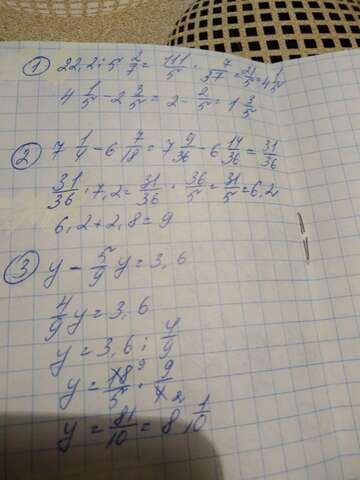 1) 22,2 : 5 2/7 = 111/5 · 7/37 = 21/5 = 4 1/5
4 1/5 - 2 3/5 = 2 - 2/5 = 1 3/5
2) 7 1/4 - 6 7/18 = 7 9/36 - 6 14/36 = 31/36
31/36 · 7,2 = 31/36 · 36/5 = 31/5 = 6,2
6,2 + 2,8 = 9
3) y - 5/9 y = 3,6
4/9 y = 3,6
y = 3,6 : 4/9
y = 18 9/5 · 9/4 2
y = 81/10 = 8 1/10